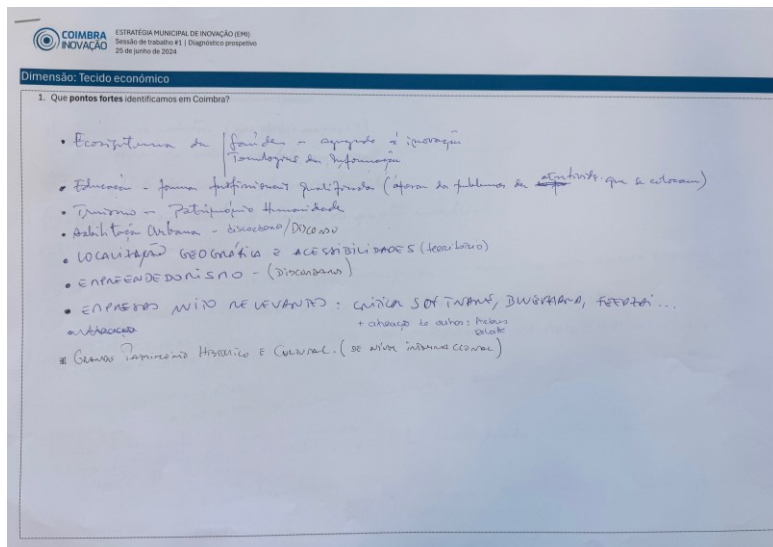 COIMBRA INOVAÇÃO
ESTRATÉGIA MUNICIPAL DE INOVAÇÃO (EMI)
Sessão de trabalho #1 | Diagnóstico prospetivo
25 de junho de 2024
Dimensão: Tecido económico
1. Que pontos fortes identificamos em Coimbra?
• Ecossistema da | Saúde – agregado à inovação
Tecnologias da Informação
• Educação – forma profissionais qualificados (apesar dos problemas de que se colocam)
• Turismo – Património Humanidade
• Urbana –
• LOCALIZAÇÃO GEOGRÁFICA E ACESSIBILIDADES (território)
• EMPREENDEDORISMO – (
• EMPRESAS MTO RELEVANTES: CRITICAL SOFTWARE, BLUEPHARMA, FEEDZAI...
+ atração de outros: Airbus
GRANDE PATRIMÓNIO HISTÓRICO E CULTURAL. (DE NÍVEL INTERNACIONAL)